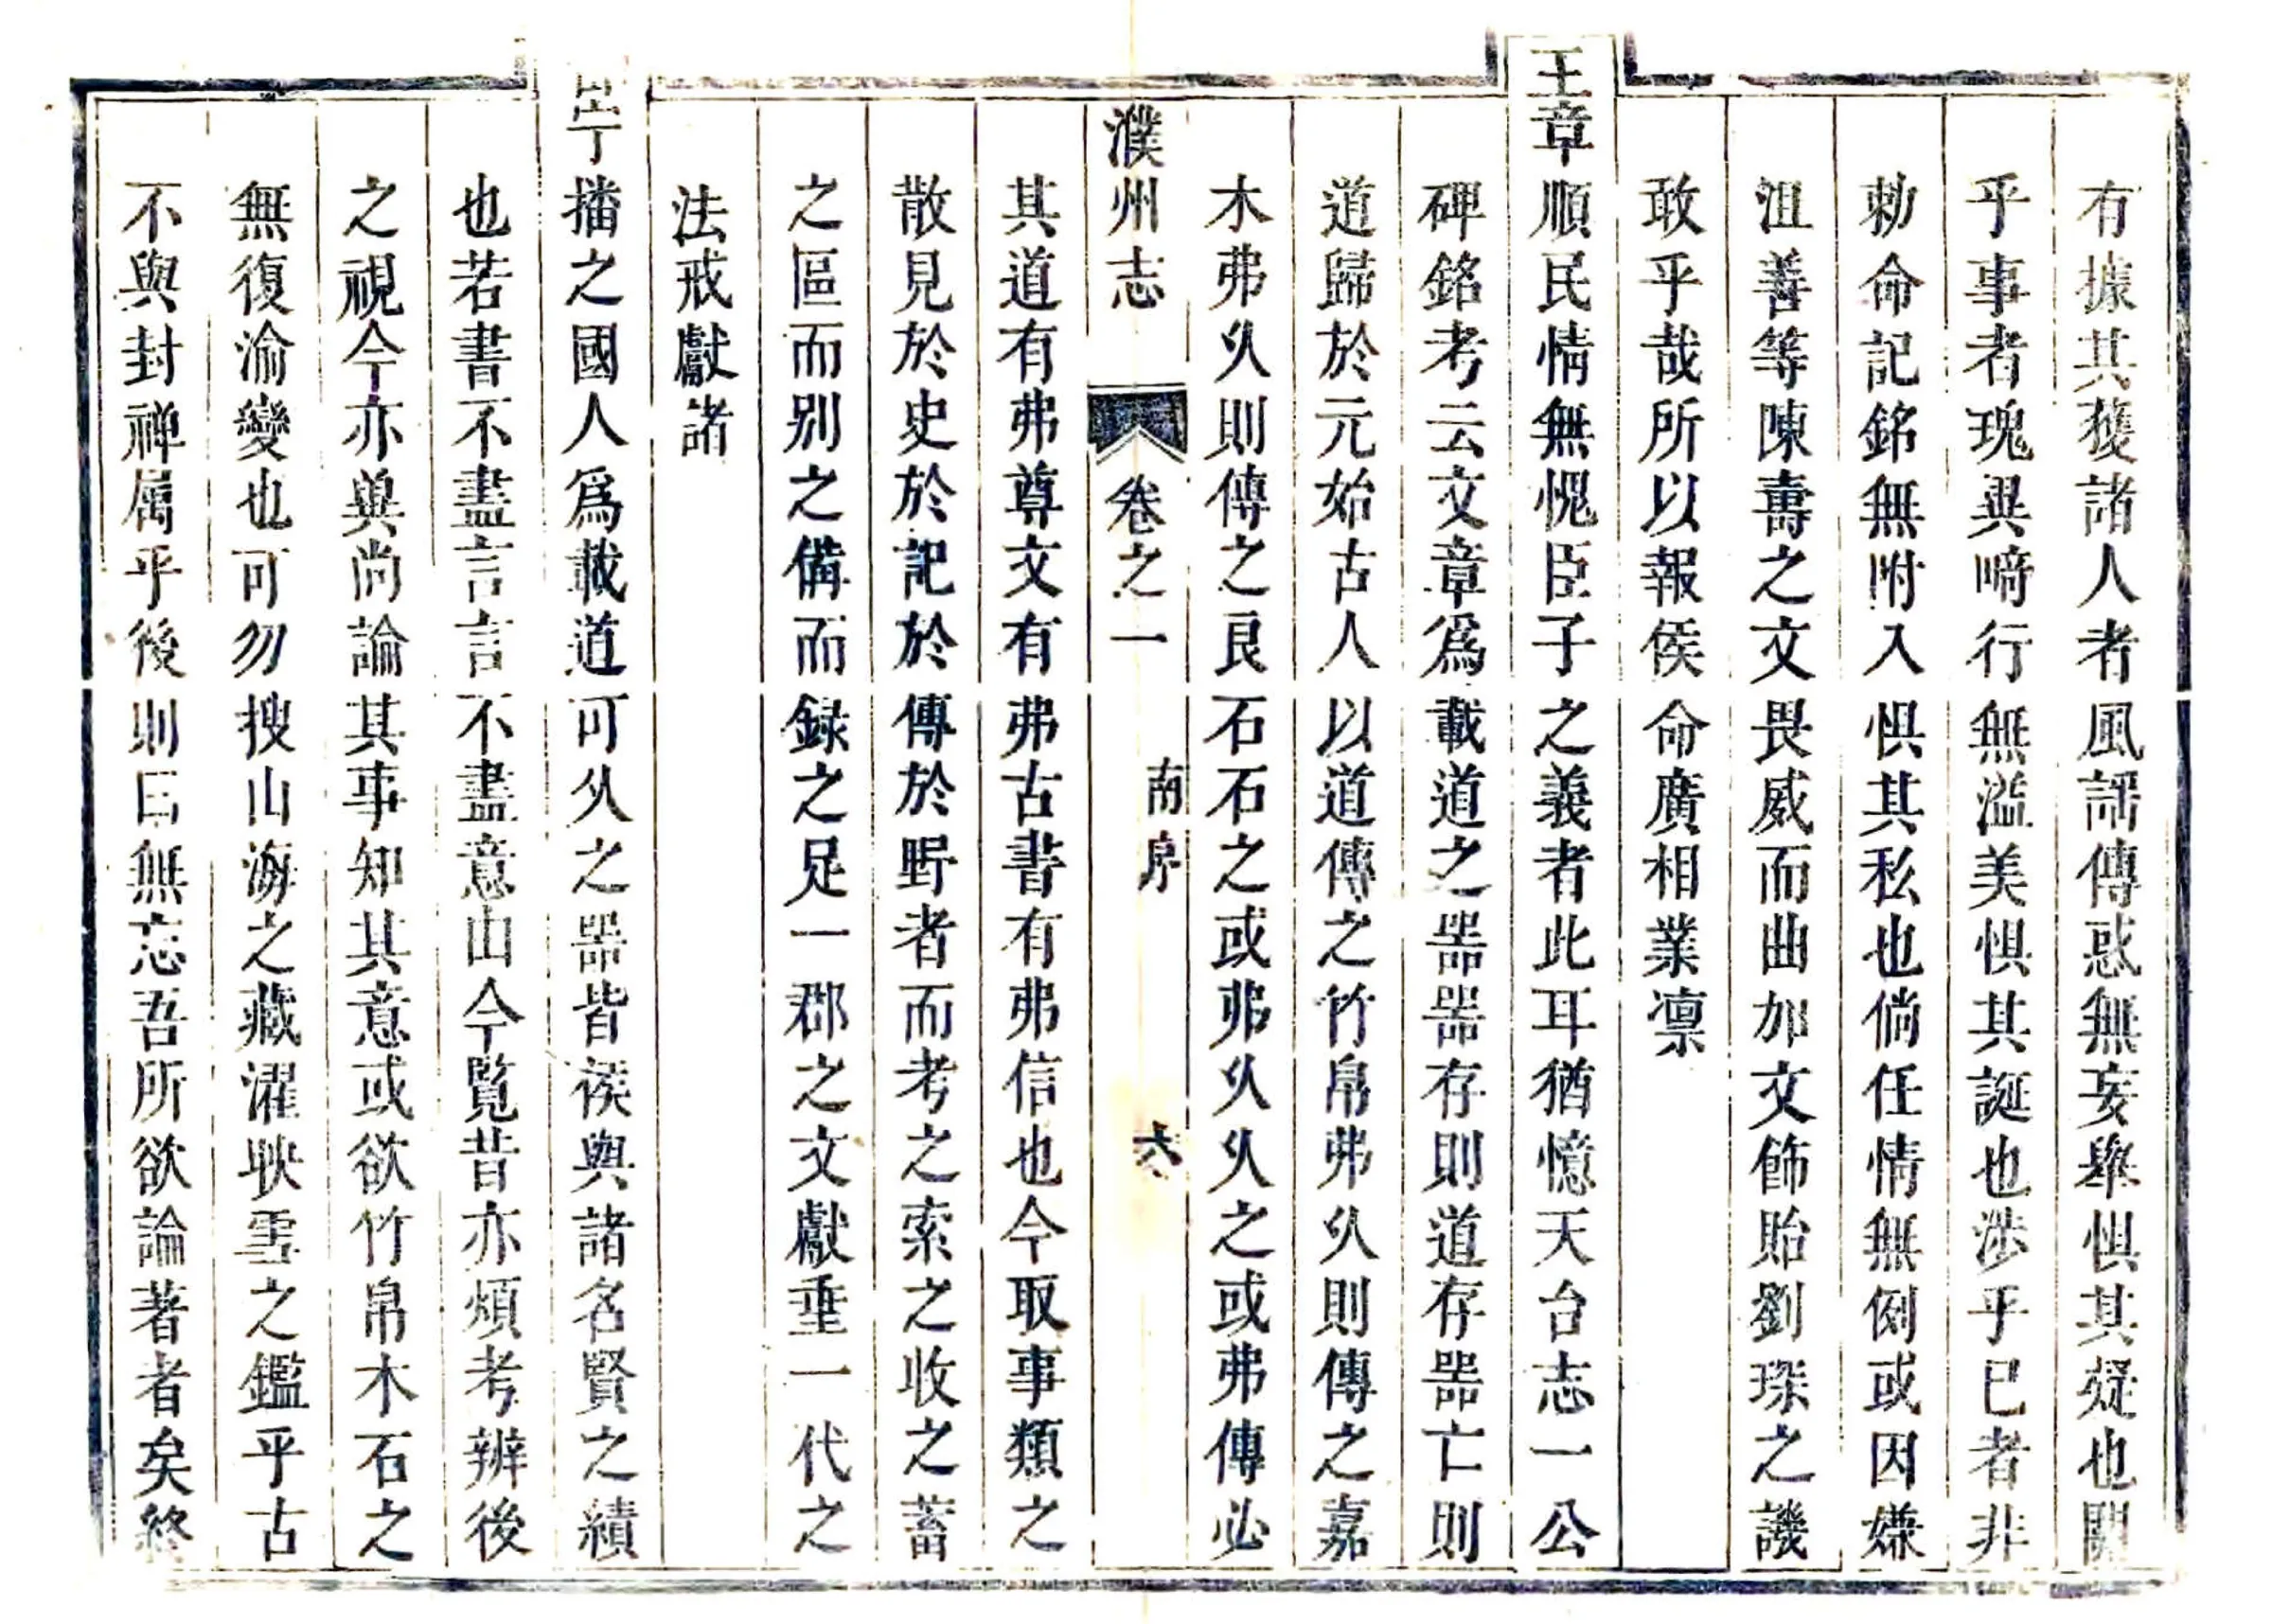 有據其獲諸人者風謡傳惑無妄舉惧其疑也関
乎事者瑰異啼行無溢美惧其誕也涉乎已者非
勅命記銘無附入惧其私也倘任情無例或因嫌
沮善等陳壽之文畏威而曲加文飾貽劉琛之譏
敢乎哉所以報侯命廣相業凛
王章順民情無愧臣子之義者此耳猶憶天台志一公
碑銘考云文章爲載道之器器存則道存器亡則
道歸於元始古人以道傳之竹帛弗乆則傳之嘉
木弗乆則傳之良石石之或弗乆乆之或弗傳必
濮州志 卷之一 南序 六
其道有弗尊文有弗古書有弗信也今取事類之
散見於史於記於傳於野者而考之索之收之蓄
之區而别之備而録之足一郡之文獻垂一代之
法戒獻諸
播之國人爲載道可乆之器皆侯與諸名賢之績
也若書不盡言言不盡意由今覧昔亦煩考辨後
之視今亦與尚論其事知其意或欲竹帛木石之
無復渝變也可勿搜山海之藏濯映雪之鑑乎古
不與封禅属乎後則曰無忘吾所欲論著者矣終